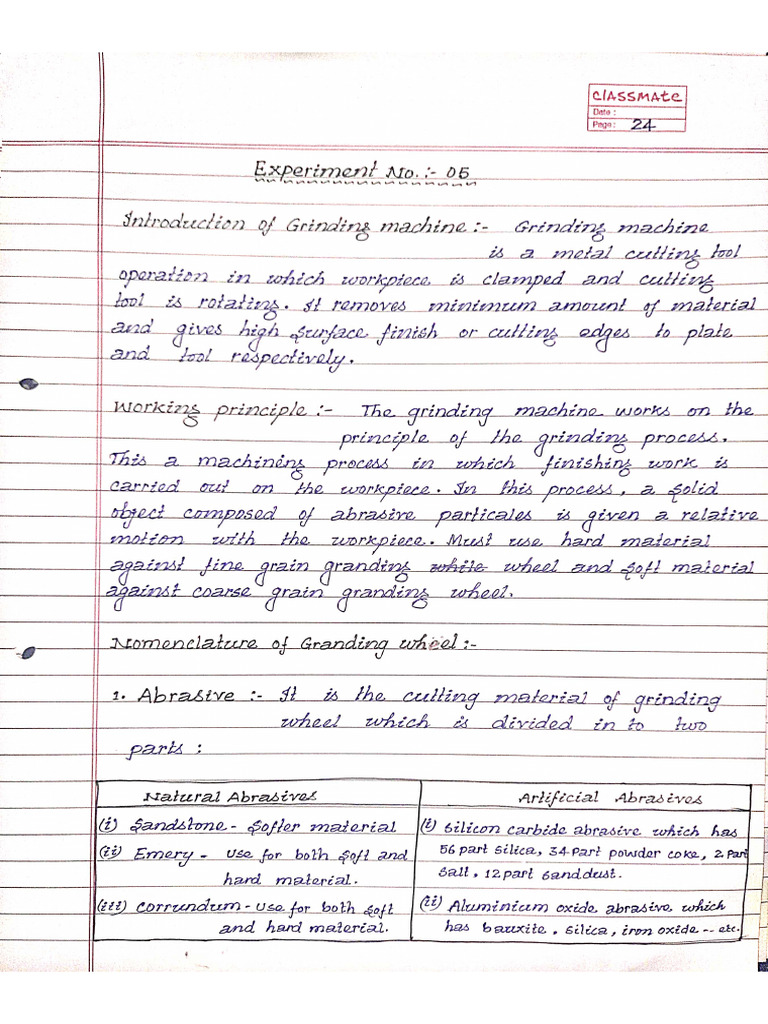 classmate
Date :
Page : 24
Experiment No. :- 05
Introduction of Grinding machine :- Grinding machine
is a metal cutting tool
operation in which workpiece is clamped and cutting
tool is rotating. It removes minimum amount of material
and gives high surface finish or cutting edges to plate
and tool respectively.
Working principle :- The grinding machine works on the
principle of the grinding process.
This a machining process in which finishing work is
carried out on the workpiece. In this process, a solid
object composed of abrasive particales is given a relative
motion with the workpiece. Must use hard material
against fine grain granding white wheel and soft material
against coarse grain granding wheel.
Nomenclature of Granding wheel :-
1. Abrasive :- It is the cutting material of grinding
wheel which is divided in to two
parts :
Natural Abrasives
(i) Sandstone - Softer material
(ii) Emery - use for both soft and
hard material.
(iii) Corrundum - use for both soft
and hard material.
Artificial Abrasives
(i) Silicon carbide abrasive which has
56 part silica, 34 part powder coke, 2 part
salt, 12 part sanddust.
(ii) Aluminium oxide abrasive which
has bauxite, silica, iron oxide -- etc.